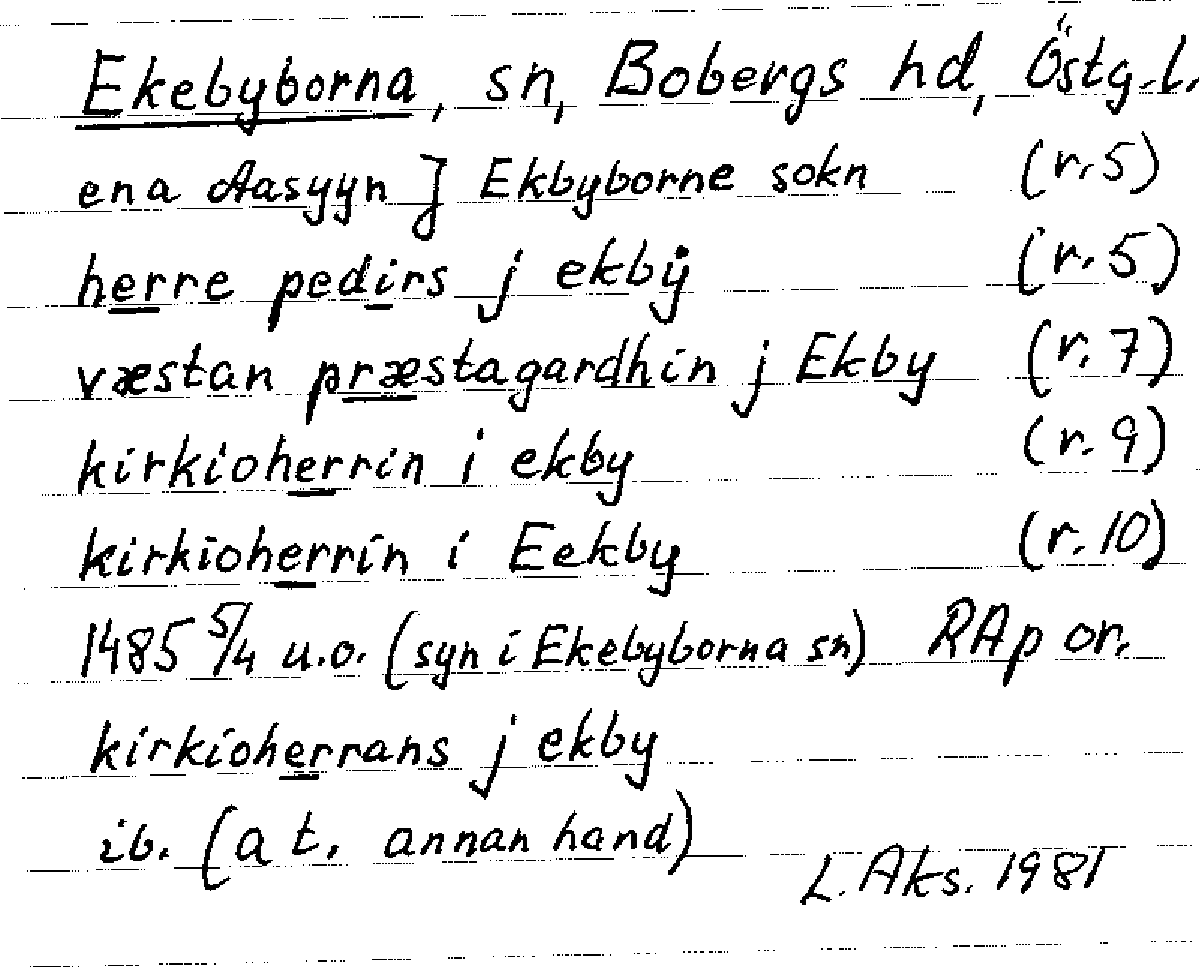 Ekebyborna, sn, Bobergs hd, Östg.l.
ena Aasyyn j Ekbyborne sokn (r.5)
herre pedirs j ekbÿ (r.5)
væstan præstagardhin j Ekby (r.7)
kirkioherrin i ekby (r.9)
kirkioherrin i Eekby (r.10)
1485 5/4 u.o. (syn i Ekebyborna sn) RAp or.
kirkioherrans j ekby
ib. (a t. annan hand)
L. Aks. 1981